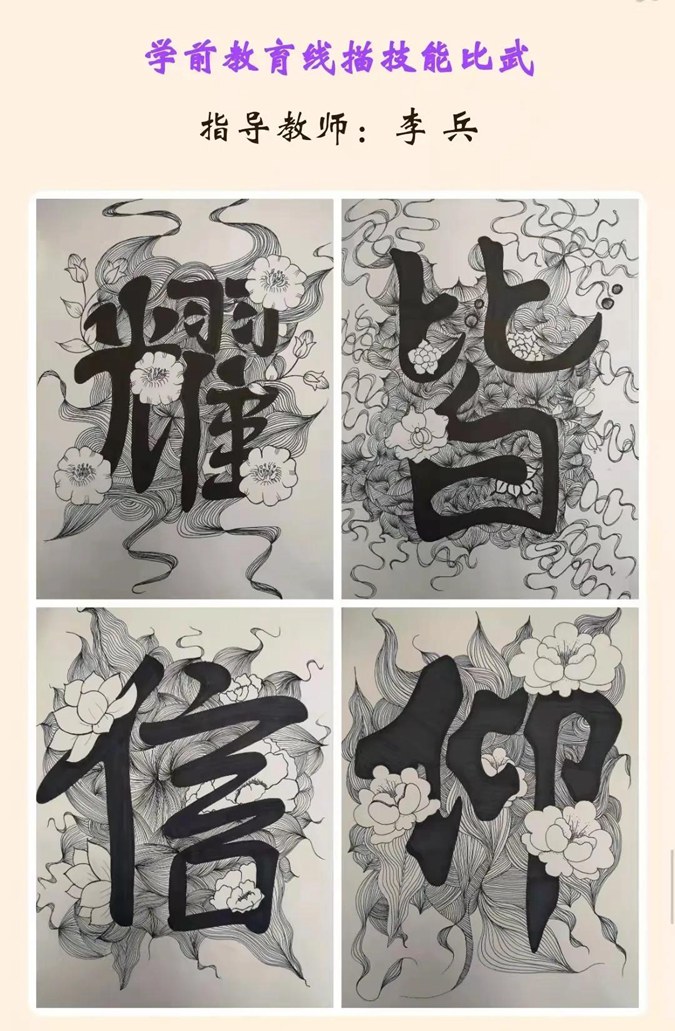 学前教育线描技能比武
指导教师：李 兵
耀
皆
信
仰